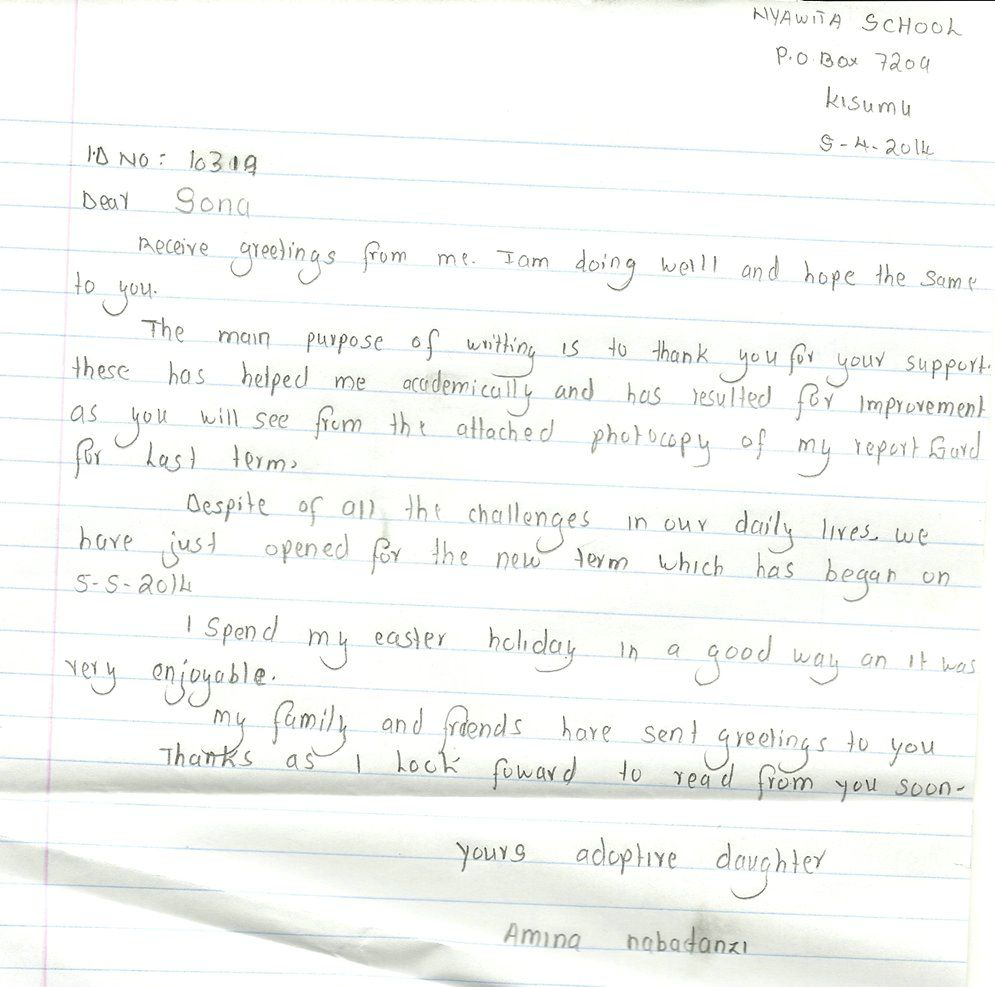 NYAWITA SCHOOL
P.O Box 7209
Kisumu
5-4-2014
I.D NO: 10319
Dear Sona
Receive greetings from me. I am doing welll and hope the same
to you.
The main purpose of writting is to thank you for your support.
these has helped me academically and has resulted for improvement
as you will see from the attached photocopy of my report Card
for Last term.
Despite of all the challenges in our daily lives we
have just opened for the new term which has began on
5-5-2014
I spend my easter holiday in a good way an it was
very enjoyable.
my family and friends have sent greetings to you
Thanks as I Look foward to read from you soon-
yours adoptive daughter
Amina nabadanzi